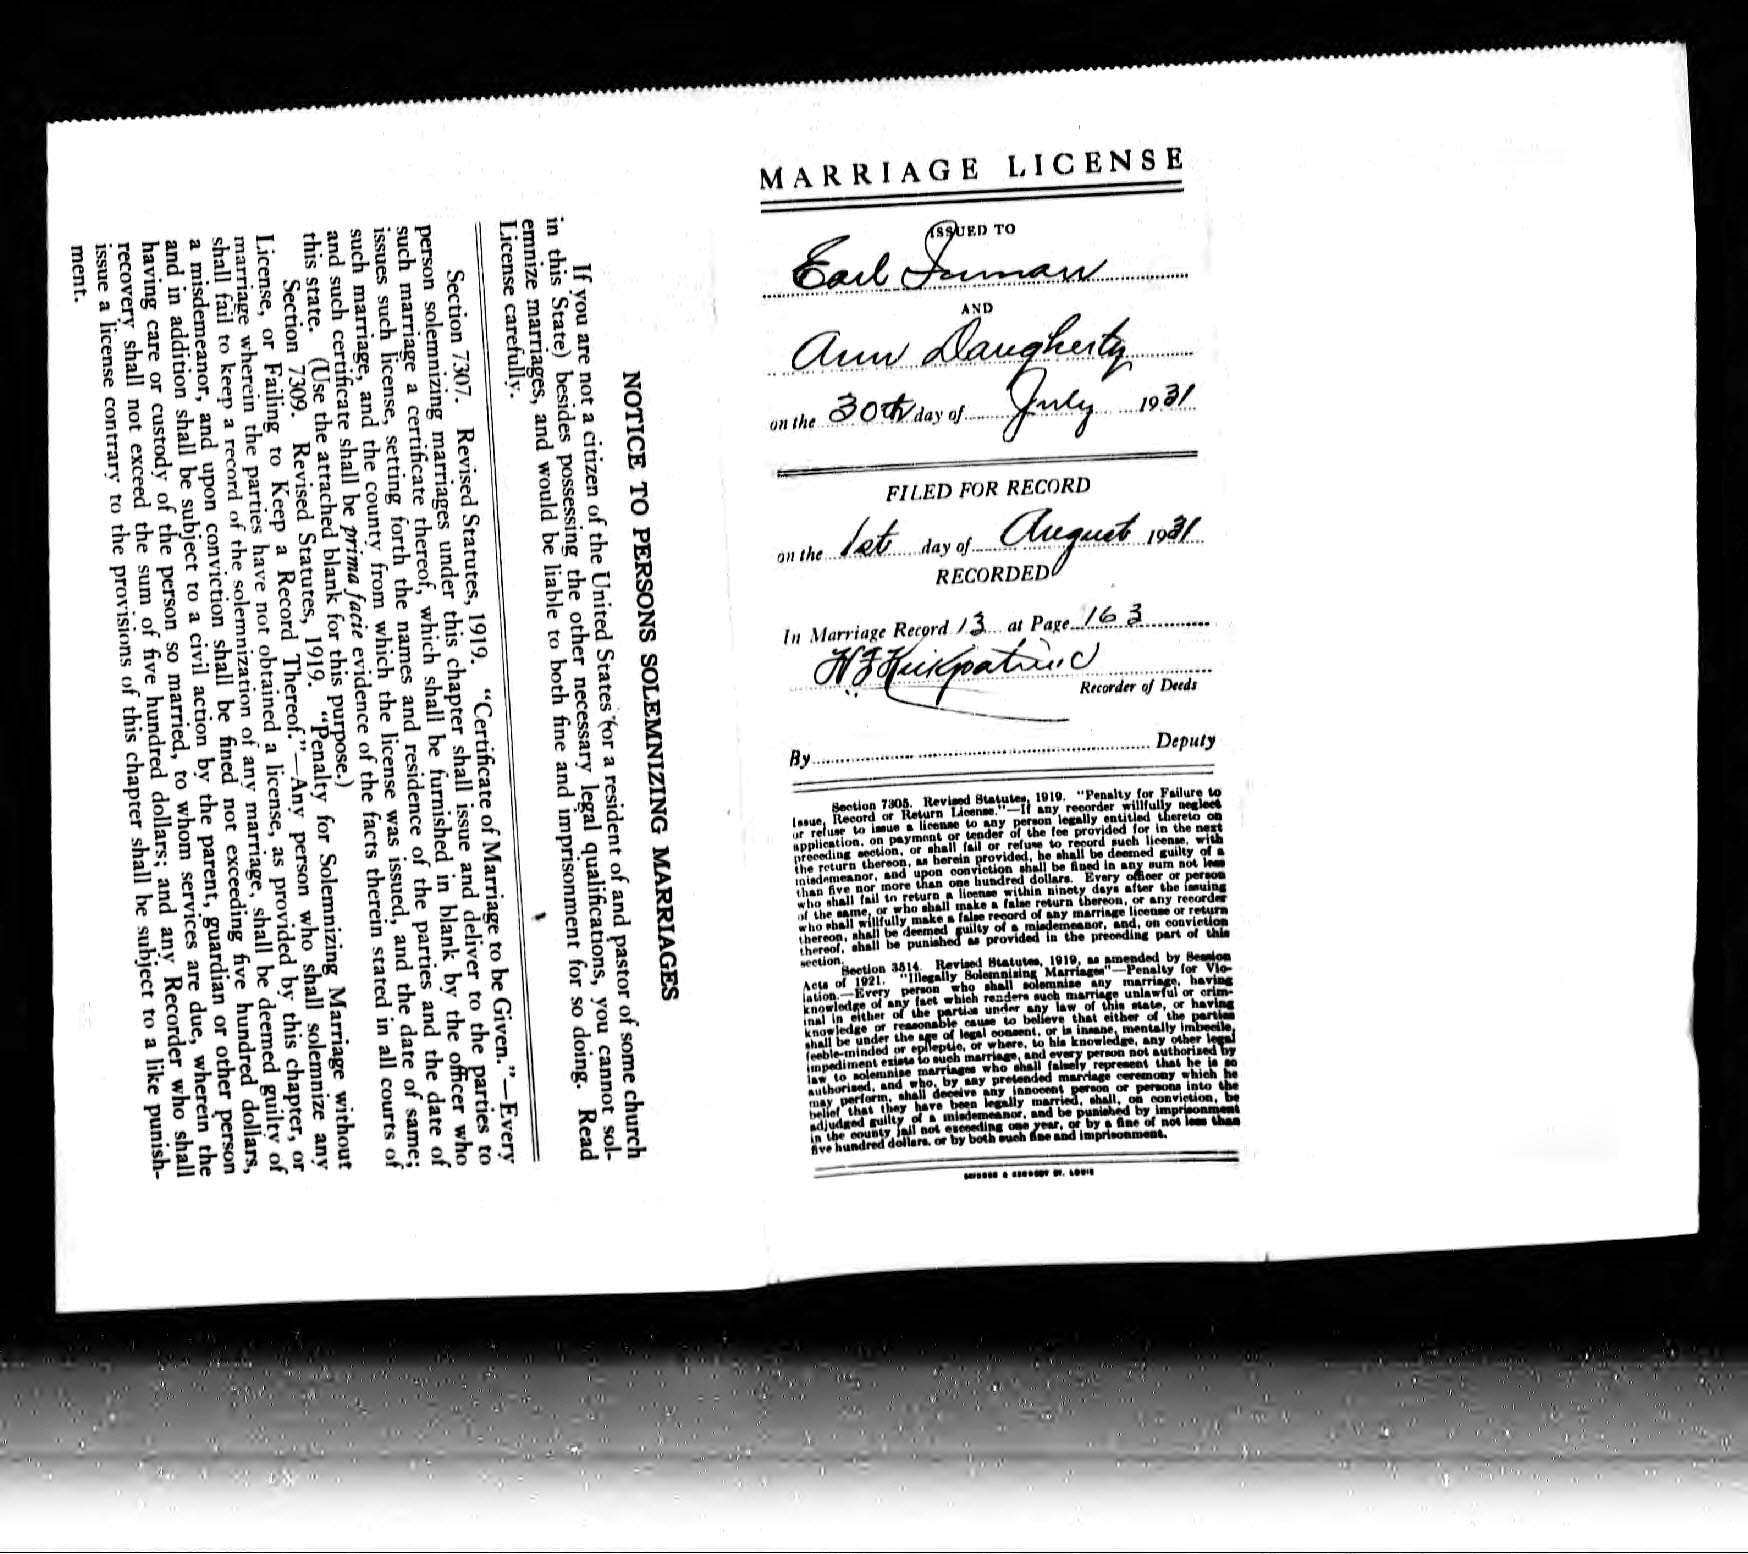 MARRIAGE LICENSE
ISSUED TO
Earl Inman
AND
Ann Daugherty
on the 30th day of July 1931
FILED FOR RECORD
on the 1st day of August 1931
RECORDED
In Marriage Record 13 at Page 163
Kirkpatrick
Recorder of Deeds
By Deputy
Section 7305. Revised Statutes, 1919. "Penalty for Failure to
Issue, Record or Return License."—If any recorder willfully neglect
or refuse to issue a license to any person legally entitled thereto on
application, on payment or tender of the fee provided for in the next
preceding section, or shall fail or refuse to record such license, with
the return thereon, as herein provided, he shall be deemed guilty of a
misdemeanor, and upon conviction shall be fined in any sum not less
than five nor more than one hundred dollars. Every officer or person
who shall fail to return a license within ninety days after the issuing
of the same, or who shall make a false return thereon, or any recorder
who shall willfully make a false record of any marriage license or return
thereon, shall be deemed guilty of a misdemeanor, and, on conviction
thereof, shall be punished as provided in the preceding part of this
section.
Section 3514. Revised Statutes, 1919, as amended by Session
Acts of 1921. "Illegally Solemnizing Marriages"—Penalty for Vio-
lation.—Every person who shall solemnize any marriage, having
knowledge of any fact which renders such marriage unlawful or crim-
inal in either of the parties under any law of this state, or having
knowledge or reasonable cause to believe that either of the parties
shall be under the age of legal consent, or is insane, mentally imbecile,
feeble-minded or epileptic, or where, to his knowledge, any other legal
impediment exists to such marriage, and every person not authorized by
law to solemnize marriages who shall falsely represent that he is so
authorized, and who, by any pretended marriage ceremony which he
may perform, shall deceive any innocent person or persons into the
belief that they have been legally married, shall, on conviction, be
adjudged guilty of a misdemeanor, and be punished by imprisonment
in the county jail not exceeding one year, or by a fine of not less than
five hundred dollars, or by both such fine and imprisonment.
NOTICE TO PERSONS SOLEMNIZING MARRIAGES
If you are not a citizen of the United States (or a resident of and pastor of some church
in this State) besides possessing the other necessary legal qualifications, you cannot sol-
emnize marriages, and would be liable to both fine and imprisonment for so doing. Read
License carefully.
Section 7307. Revised Statutes, 1919. "Certificate of Marriage to be Given."—Every
person solemnizing marriages under this chapter shall issue and deliver to the parties to
such marriage a certificate thereof, which shall be furnished in blank by the officer who
issues such license, setting forth the names and residence of the parties and the date of
such marriage, and the county from which the license was issued, and the date of same;
and such certificate shall be prima facie evidence of the facts therein stated in all courts of
this state. (Use the attached blank for this purpose.)
Section 7309. Revised Statutes, 1919. "Penalty for Solemnizing Marriage without
License, or Failing to Keep a Record Thereof."—Any person who shall solemnize any
marriage wherein the parties have not obtained a license, as provided by this chapter, or
shall fail to keep a record of the solemnization of any marriage, shall be deemed guilty of
a misdemeanor, and upon conviction shall be fined not exceeding five hundred dollars,
and in addition shall be subject to a civil action by the parent, guardian or other person
having care or custody of the person so married, to whom services are due, wherein the
recovery shall not exceed the sum of five hundred dollars; and any Recorder who shall
issue a license contrary to the provisions of this chapter shall be subject to a like punish-
ment.